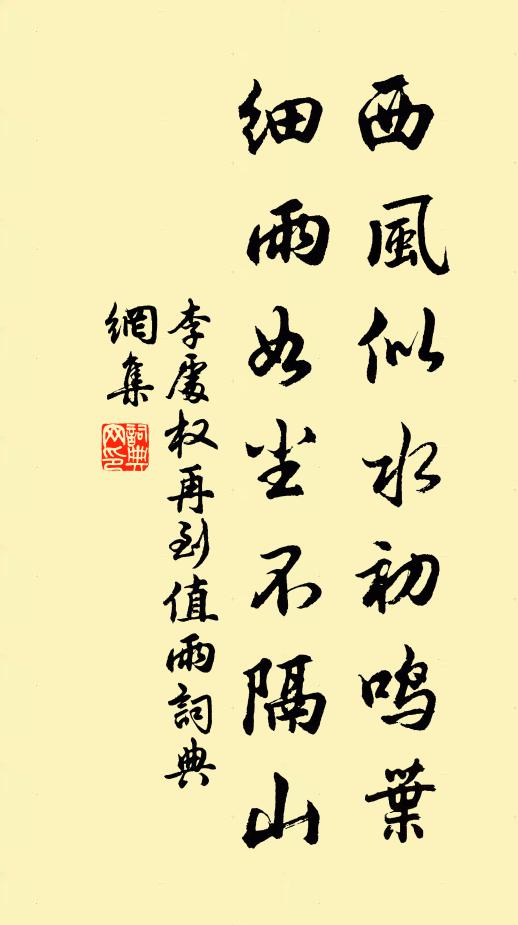 西風似水初鸣葉
細雨如尘不隔山
李處权再到值雨詞典
網集
詞典
网印